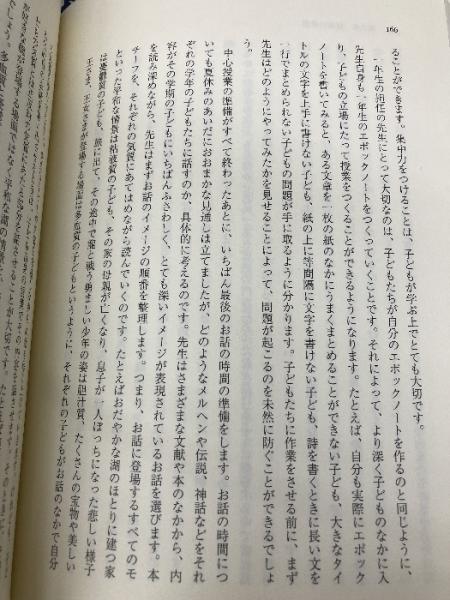 166
ることができます。集中力をつけることは、子どもが学ぶ上でとても大切です。
一年生の担任の先生にとって大切なのは、子どもたちが自分のエポックノートを作るのと同じように、
先生自身も一年生のエポックノートをつくっていくことです。それによって、より深く子どものなかに入
り、子どもの立場にたって授業をつくることができるようになります。たとえば、自分も実際にエポック
ノートを書いてみると、ある文章を一枚の紙のなかにうまくまとめることができない子ども、大きなタイ
トルの文字を上手に書けない子ども、紙の上に等間隔に文字を書けない子ども、詩を書くときに長い文を
一行でまとめられない子どもの問題が手に取るように分かります。子どもたちに作業をさせる前に、まず
先生はどのようにやってみたかを見せることによって、問題が起こるのを未然に防ぐことができるでしょ
う。
中心授業の準備がすべて終わったあとに、いちばん最後のお話の時間の準備をします。お話の時間につ
いても夏休みのあいだにおおまかな見通しは立てましたが、どのようなメルヘンや伝説、神話などをそれ
ぞれの学年の子どもたちに話すのか、具体的に考えるのです。先生はさまざまな文献や本のなかから、内
容がその学期の子どもにいちばんふさわしく、とても深いイメージが表現されているお話を選びます。本
を読み深めながら、先生はまずお話のイメージの順番を整理します。つまり、お話に登場するすべてのモ
チーフを、それぞれの気質にあてはめながら読んでいくのです。たとえばおだやかな湖のほとりに建つ家
といった平和な情景は粘液質の子ども、その家の母親が亡くなり、息子が一人ぼっちになった悲しい様子
は憂鬱質の子ども、旅に出て、その途中で竜と戦う勇ましい少年の姿は胆汁質、たくさんの宝物や美しい
王さま、王女さまが登場する場面は多血質の子どもというように、それぞれの子どもがお話のなかで自分